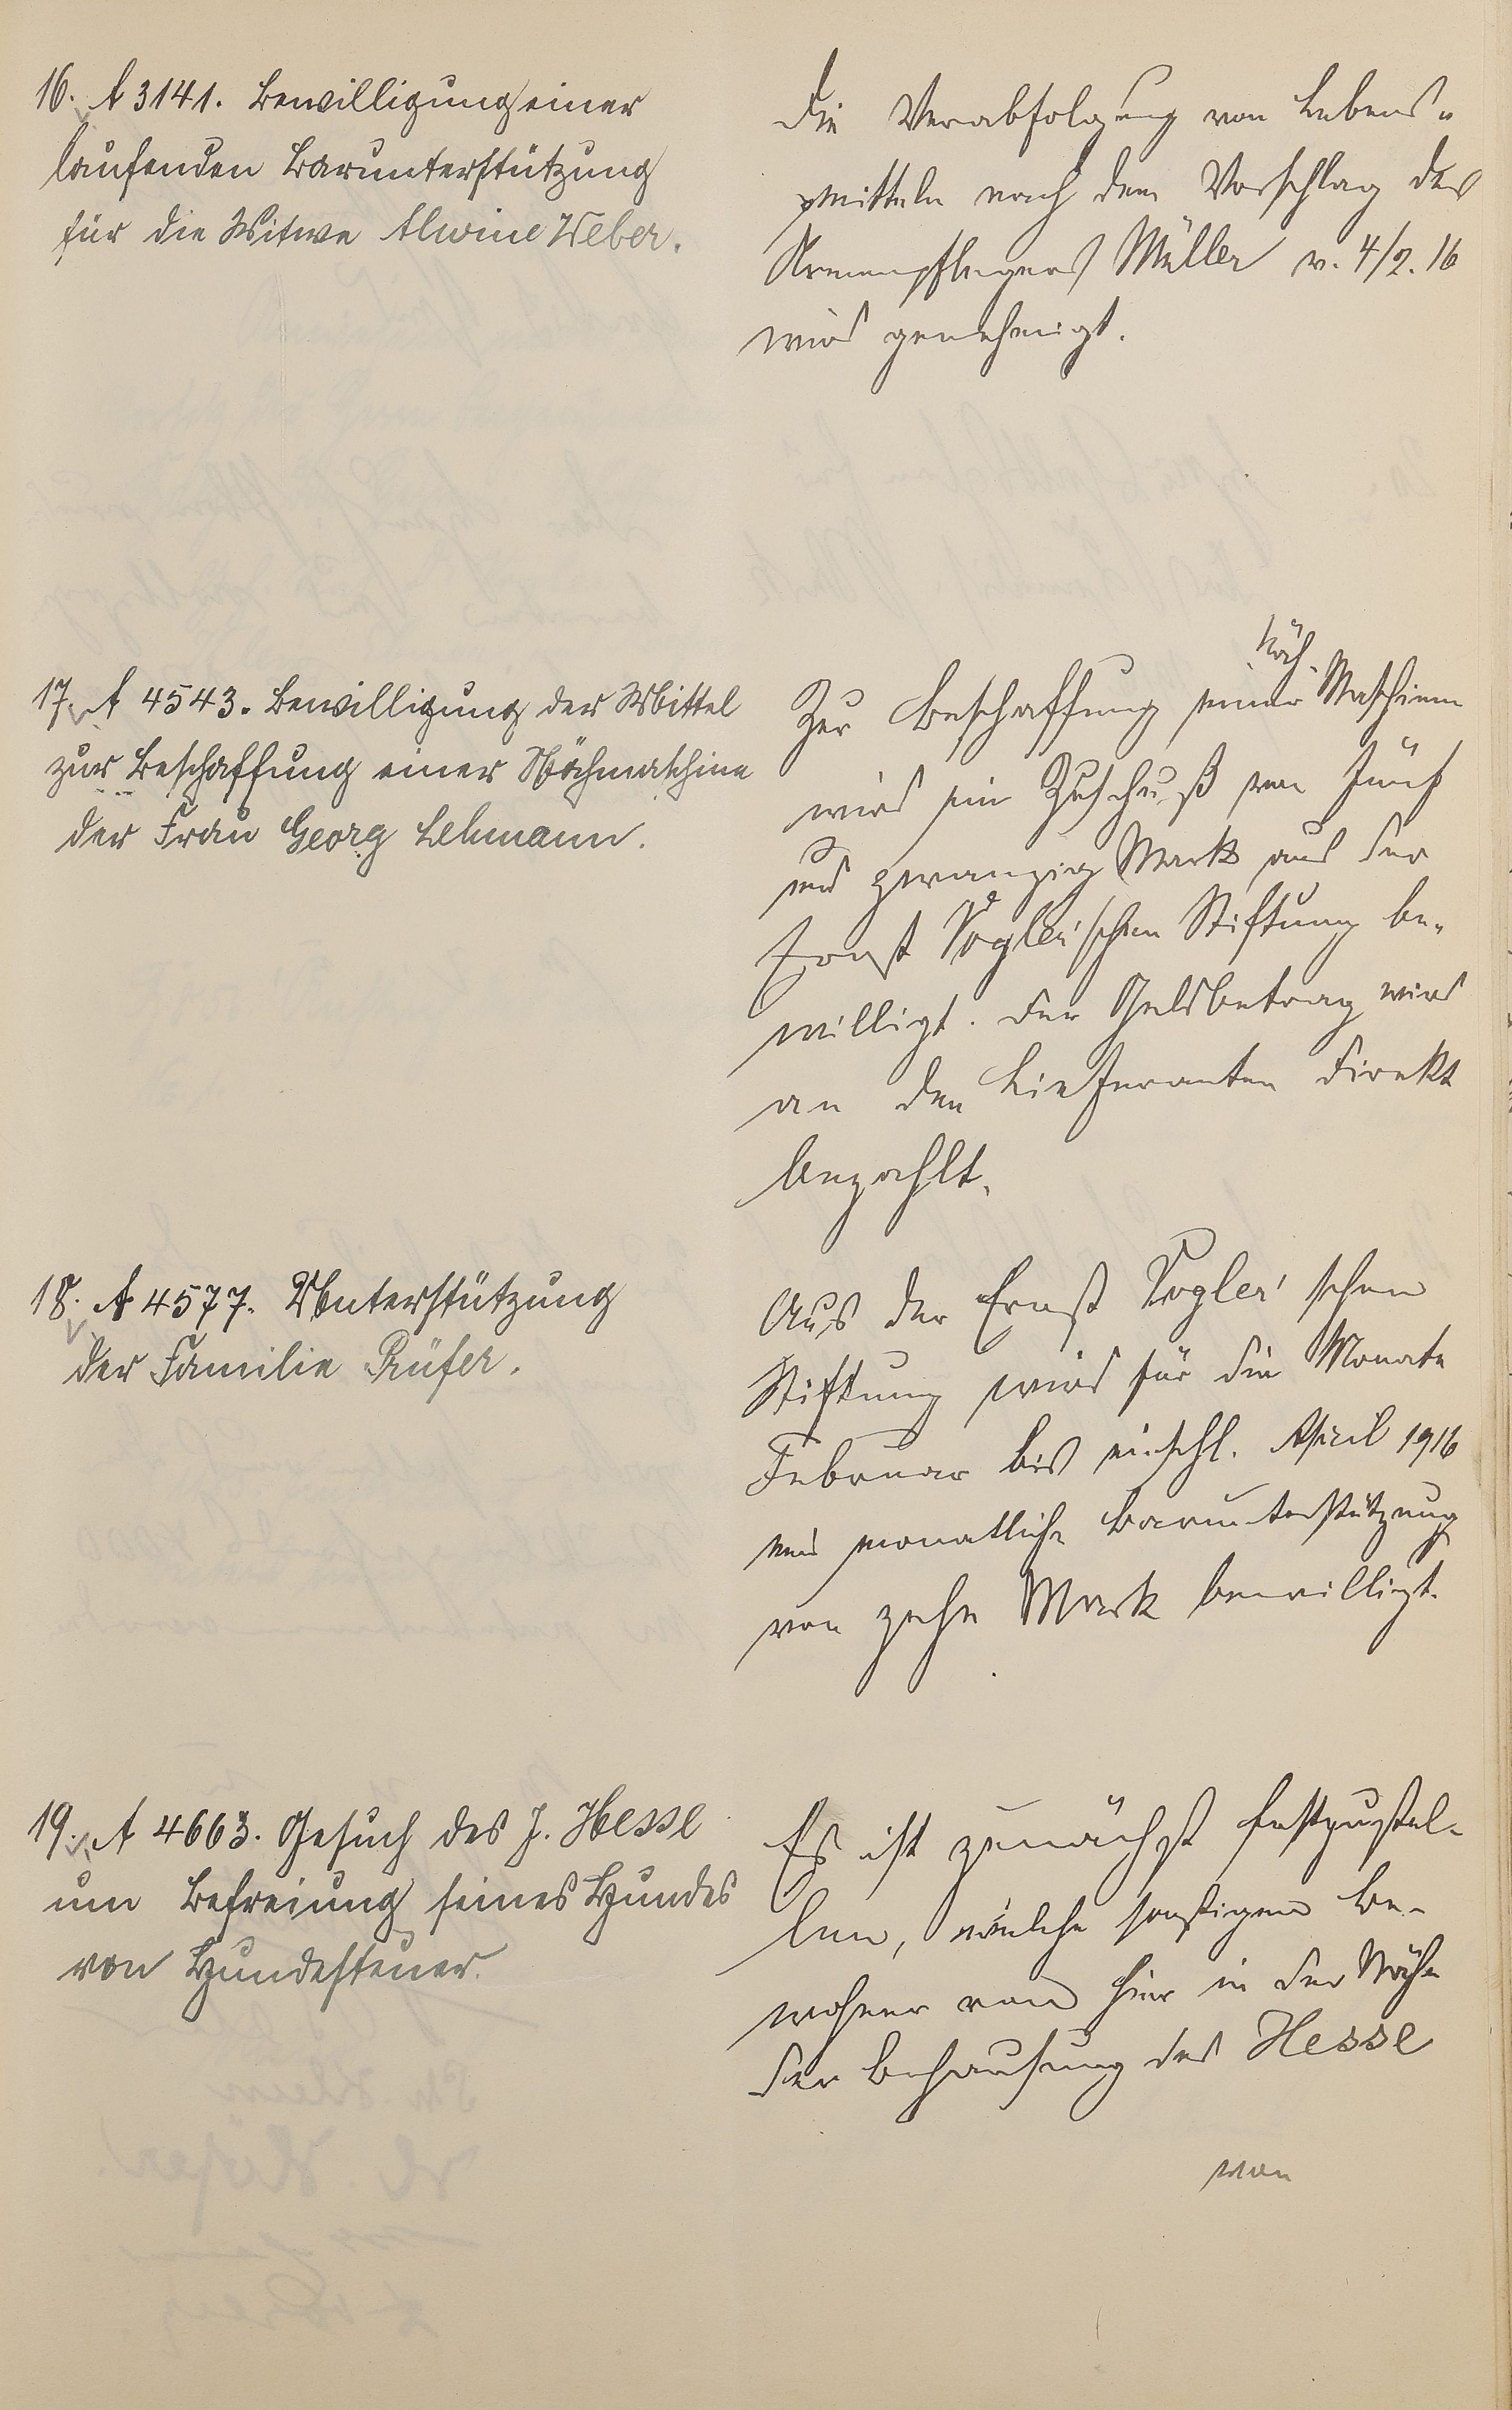 16. A 3141. Bewilligung einer
laufenden Barunterstützung
für die Witwe Alwine Weber.
Die Verabfolgung von Lebens-
mitteln nach dem Vorschlag des
Armenpflegers Müller v. 4/2. 16
wird genehmigt.
17. A 4543. Bewilligung der Mittel
zur Beschaffung einer Nähmaschine
der Frau Georg Lehmann.
Näh-
Zur Beschaffung einer Maschine
wird ein Zuschuß von fünf
und zwanzig Mark aus der
Ernst Vogler'schen Stiftung be-
willigt. Der Geldbetrag wird
an den Lieferanten direkt
bezahlt.
18. A 4577. Unterstützung
der Familie Rüfer.
Aus der Ernst Vogler'schen
Stiftung wird für die Monate
Februar bis einschl. April 1916
eine monatliche Barunterstützung
von zehn Mark bewilligt.
19. A 4663. Gesuch des J. Hesse
um Befreiung seines Hundes
von Hundesteuer.
Es ist zunächst festzustel-
len, welche sonstigen Be-
wohner von hier in der Nähe
der Behausung des Hesse